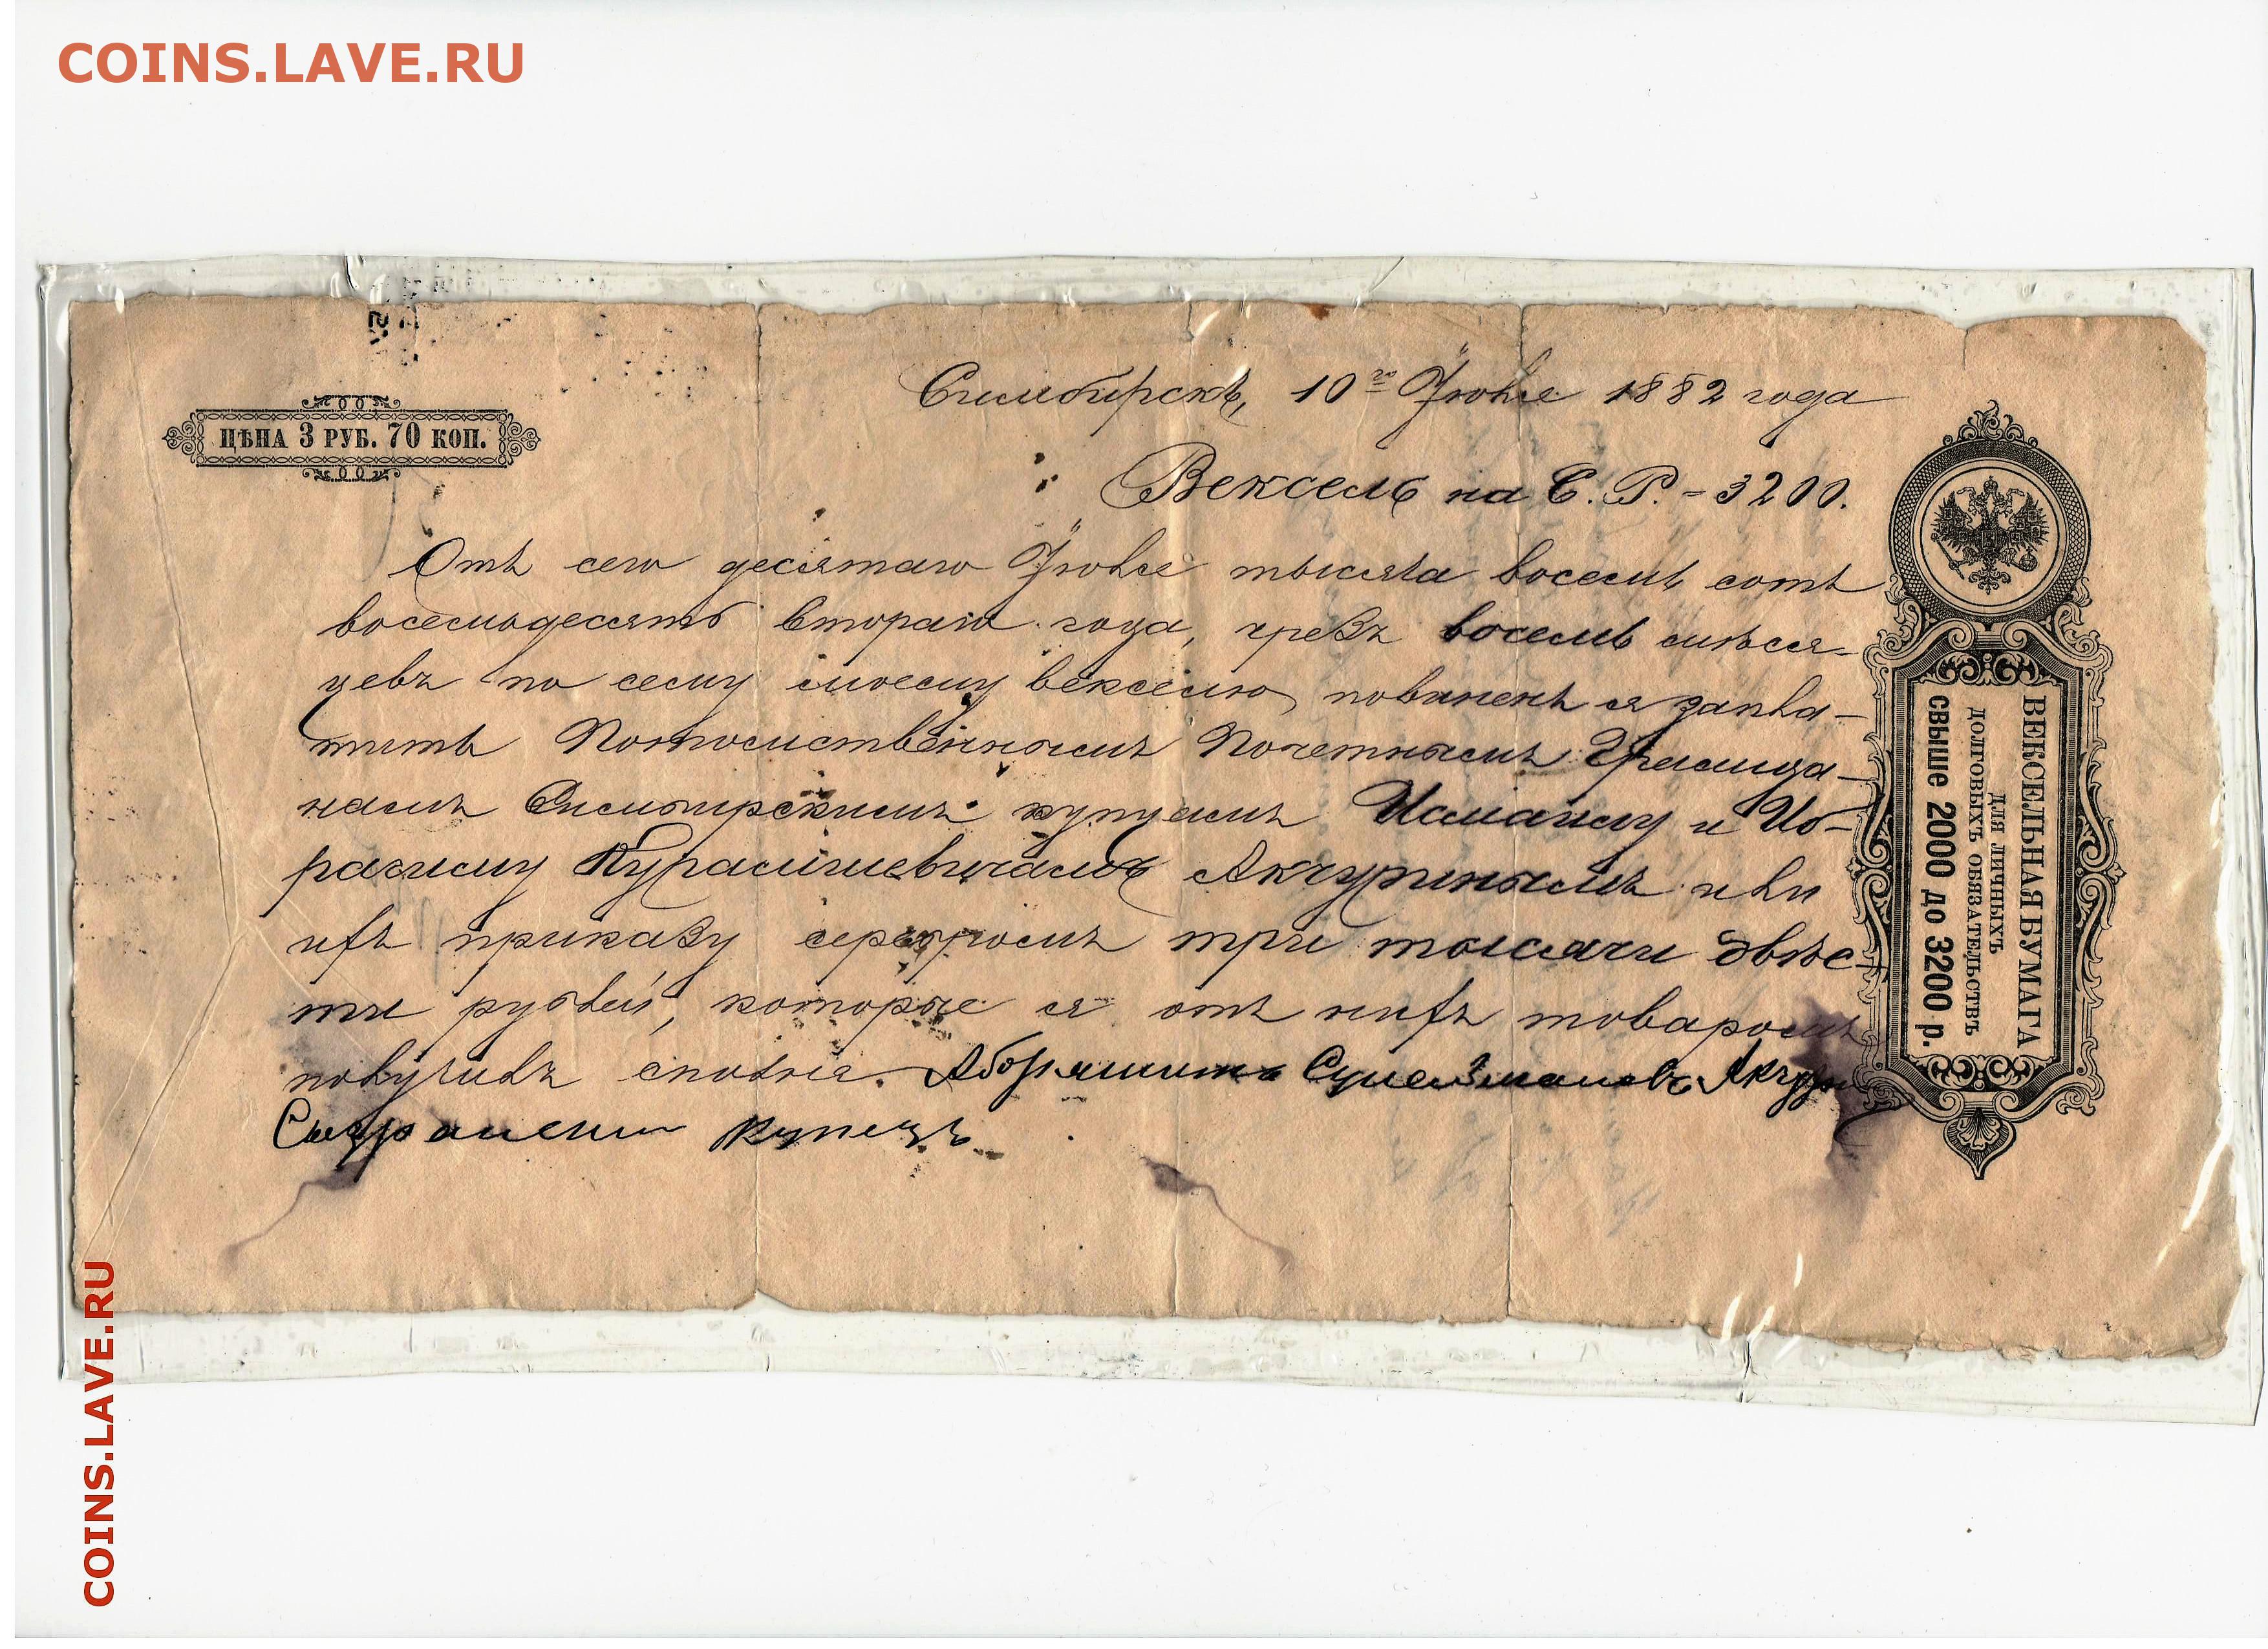 COINS.LAVE.RU
ЦѢНА 3 РУБ. 70 КОП.
Симбирскъ, 10го Іюля 1882 года
Вексель на С. Р. - 3200.
Отъ сего десятаго Іюля тысяча восемь сотъ
восемьдесятъ втораго года, чрезъ восемь мѣся-
цевъ по сему моему векселю повиненъ я запла-
тить Потомственнымъ Почетнымъ Гражда-
намъ Симбирскимъ купцамъ Исмаилу и Иб-
рагиму Курамшевичамъ Акчуринымъ или
ихъ приказу серебромъ три тысячи двѣс-
ти рублей, которые я отъ нихъ товаромъ
получилъ сполна. Сулейманова
купецъ
ВЕКСЕЛЬНАЯ БУМАГА
ДЛЯ ЛИЧНЫХЪ
ДОЛГОВЫХЪ ОБЯЗАТЕЛЬСТВЪ
СВЫШЕ 2000 ДО 3200 Р.
COINS.LAVE.RU